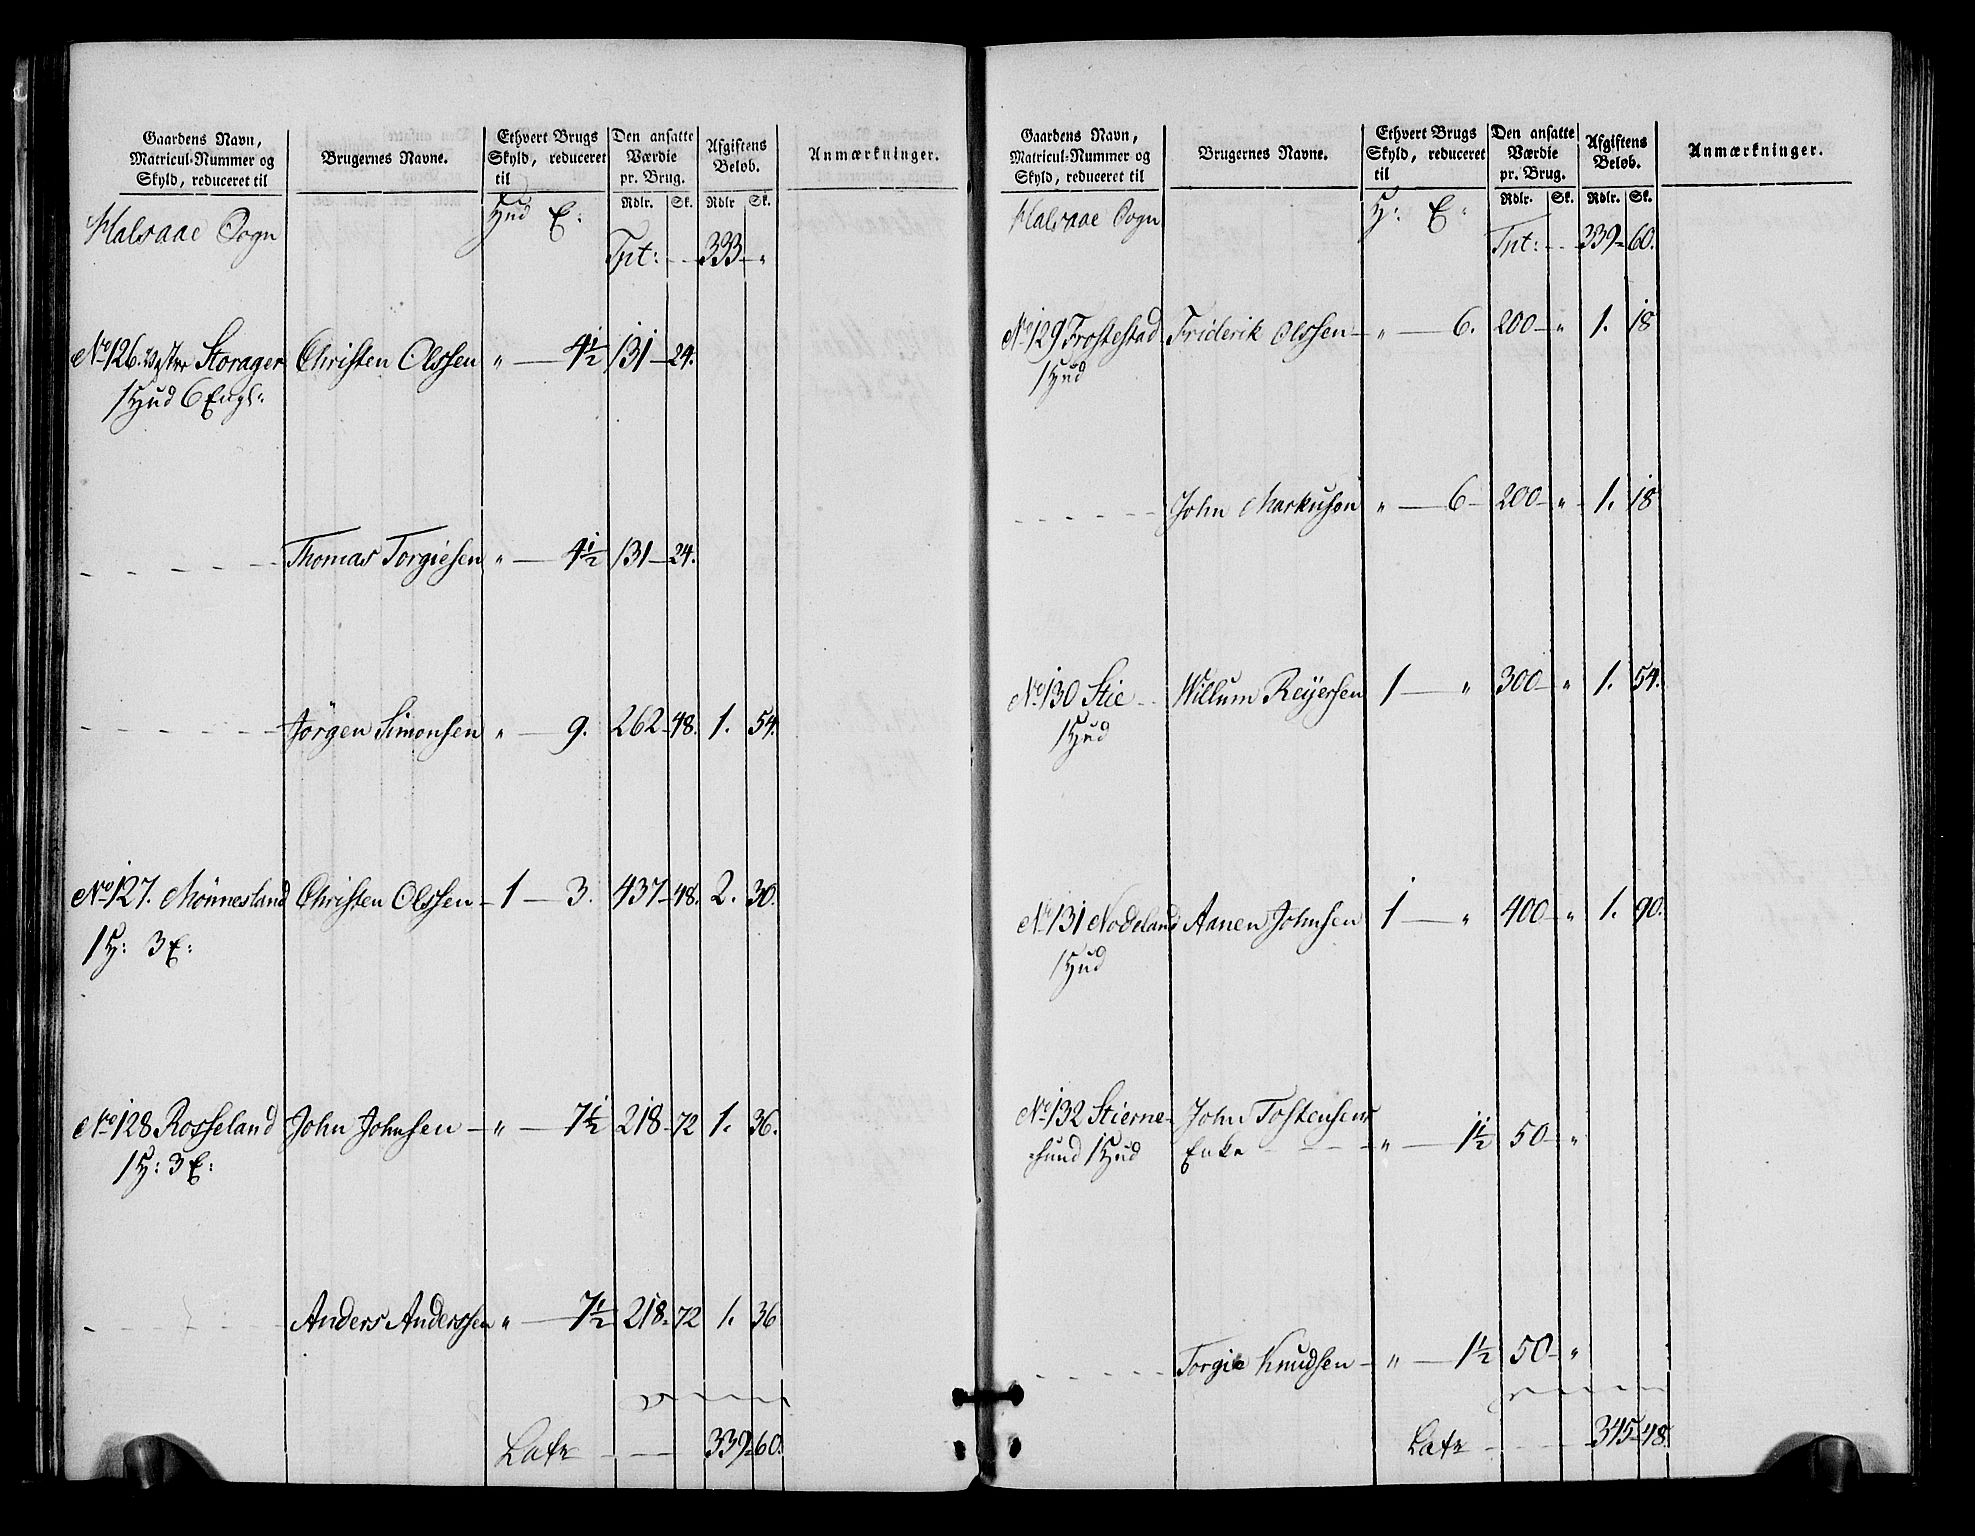 Gaardens Navn,
Matricul-Nummer og
Skyld, reduceret til
Brugernes Navne.
Ethvert Brugs
Skyld, reduceret
til
Den ansatte
Værdie
pr. Brug.
Rdlr. Sk.
Afgiftens
Beløb.
Rdlr Sk.
Anmærkninger.
Halsaae Sogn Hud E:
Tpt: - - 333 — "
No 126. Vestre Storager Christen Olssen " — 4½ 131 — 24.
1 Hud 6 Engl:
- - - - - Thomas Torgiesen " — 4½ 131 — 24.
- - - - - Jörgen Simonsen " — 9. 262 - 48. 1. 54.
No 127. Mönnesland Christen Olssen - 1 — 3. 437 - 48. 2. 30.
1 H: 3 E:
No 128 Rosseland John Johnsen — " — 7½ 218 - 72 1. 36.
1 H: 3 E:
- - - - - Anders Anderssen " — 7½ 218 - 72 1. 36
Latr - - - 339 - 60.
Gaardens Navn,
Matricul-Nummer og
Skyld, reduceret til
Brugernes Navne.
Ethvert Brugs
Skyld, reduceret
til
Den ansatte
Værdie
pr. Brug.
Rdlr. Sk.
Afgiftens
Beløb.
Rdlr. Sk.
Anmærkninger.
Halsaae Sogn H: E:
Tpt: - - 339 - 60.
No 129 Frostestad Friderik Olssen — " — 6. 200 — " 1. 18
1 Hud
- - - - - John Markusön " — 6 - 200 — " - 1. 18
No 130 Stie - - Willum Reÿersen 1 — " 300 — " 1. 54.
1 Hud
No 131 Nodeland Aanen Johnsen 1 — " 400 — " 1. 90.
1 Hud
No 132 Stierne- John Tostensens
sund 1 Hud Enke - - - - " — 1½ 50 — "
- - - - - Torgie Knudsen — " — 1½ 50 — "
Latr - - - 345 - 48.